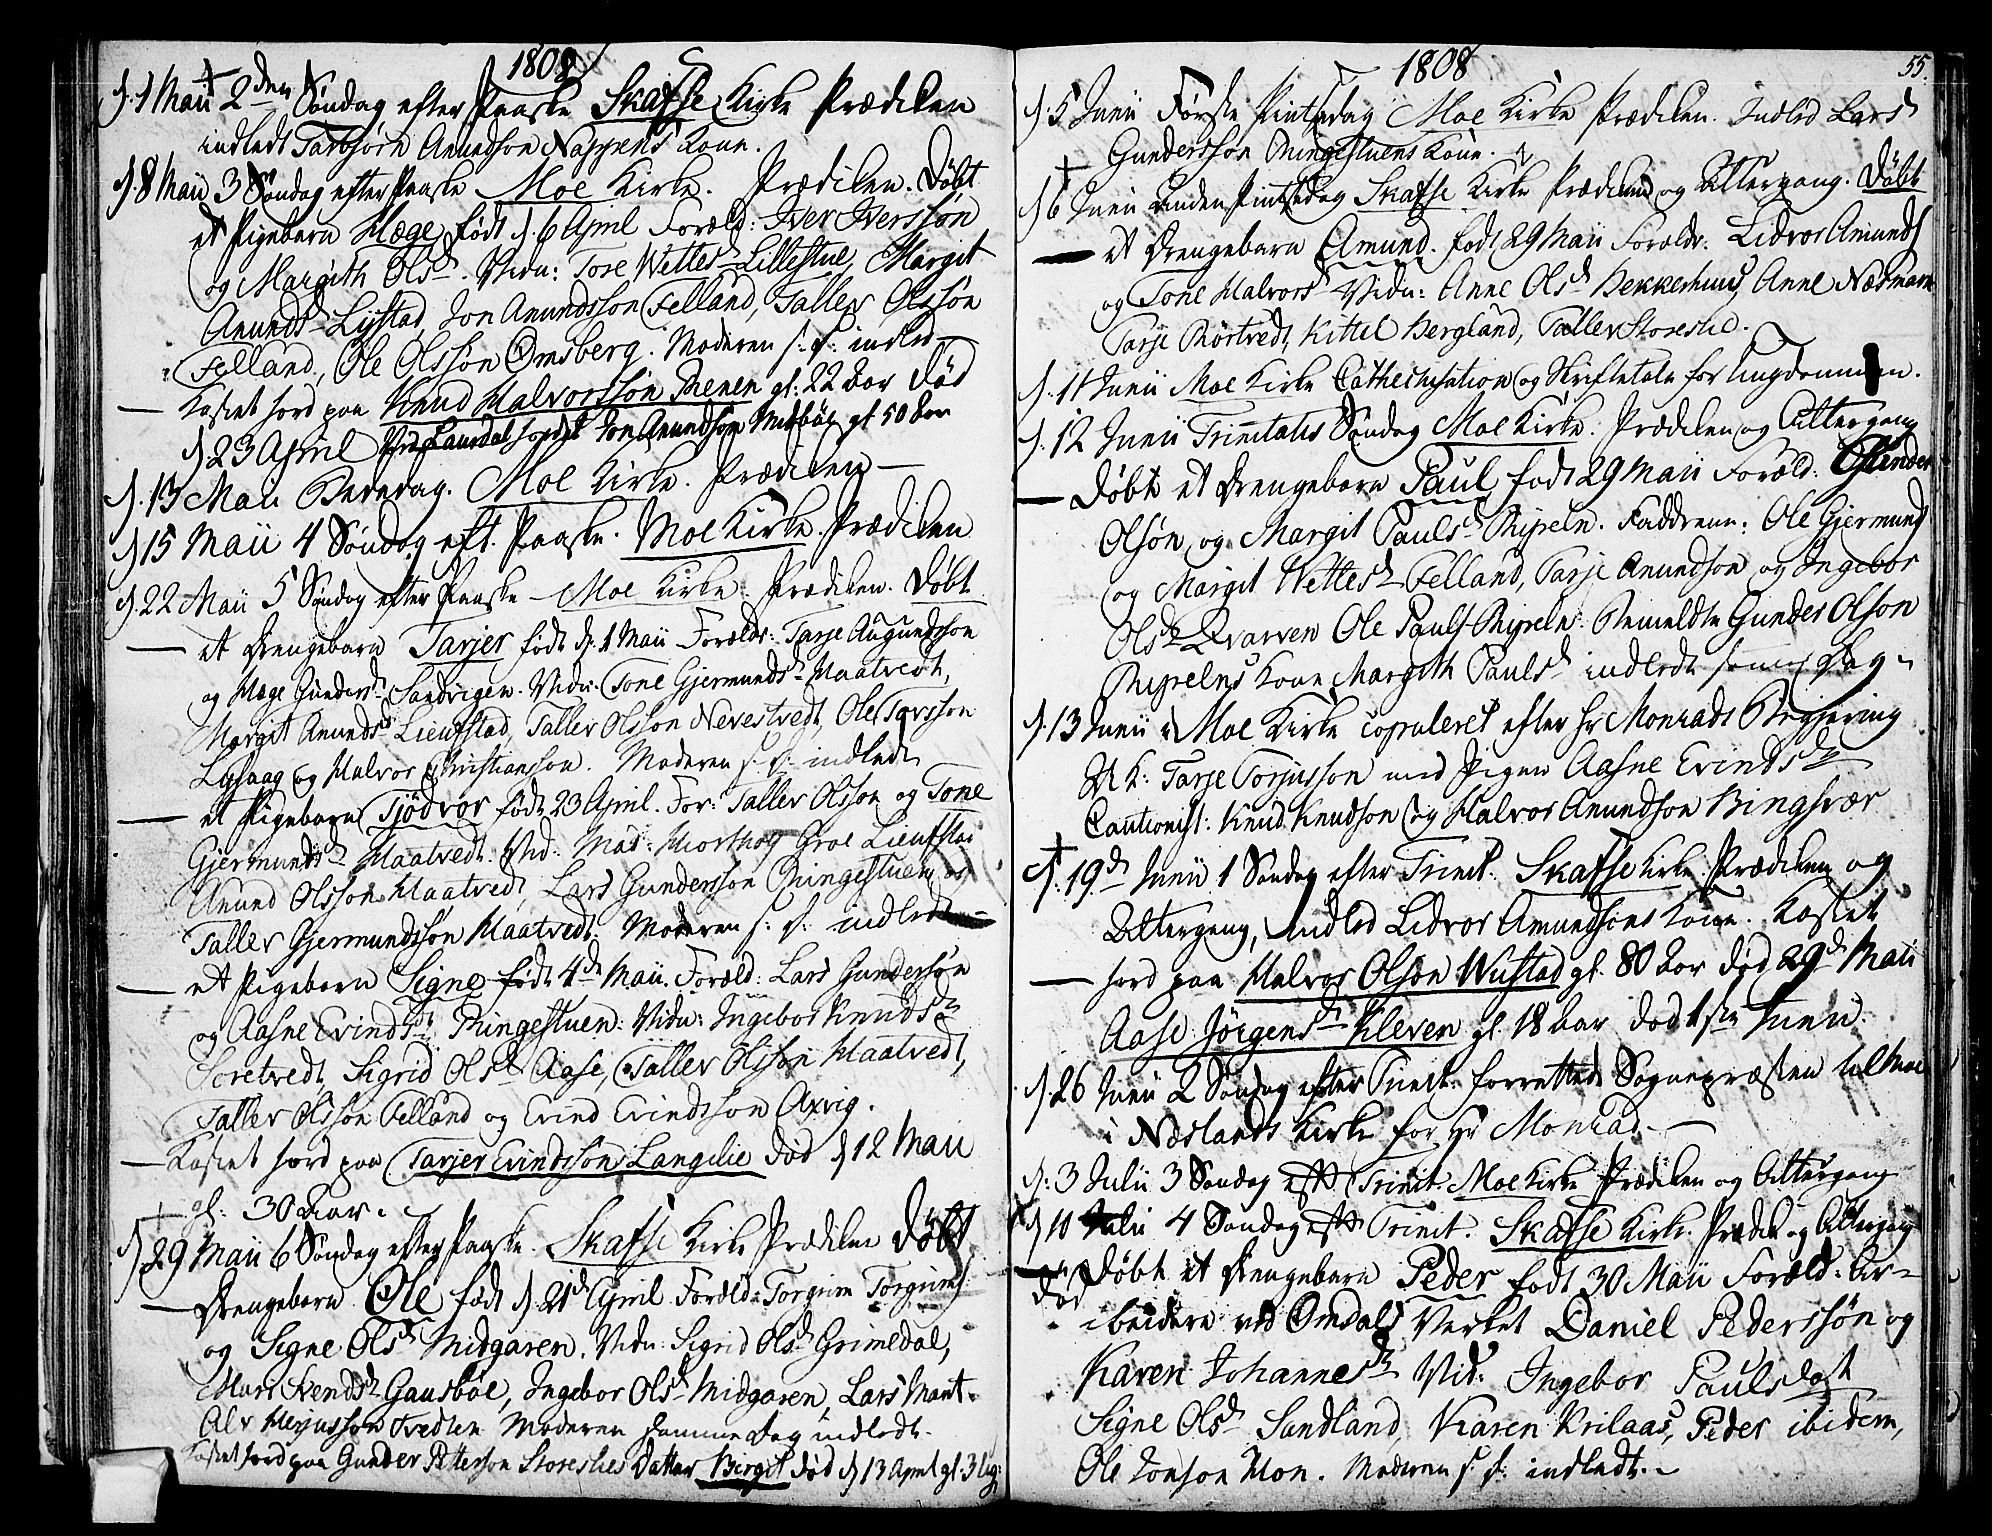 1808
d. 1 Maii 2den Søndag efter Paaske Skafse Kirke Prædiken
indledt Tarbjørn Anundson Nappens Kone.
d. 8 Maii 3 Søndag efter Paaske Moe Kirke. Prædiken. Døbt
et Pigebarn Hæge født d. 6 April Foræld: Iver Iverssøn
og Margith Olsd. Vidn: Tore Vettesd Lillestue, Margit
Anundsd Lystad, Jon Anundsson Felland, Tallev Olssøn
Felland, Ole Olssøn Omsberg. Moderen s. d. indled
Kastet Jord paa Knud Halvorssøn Meenen gl. 22 Aar død
d 23 April Jon Anundson Midbøe gl 50 Aar
d. 13 Maii Bededag. Moe Kirke. Prædiken
d 15 Maii 4 Søndag eft. Paaske. Moe Kirke. Prædiken
d. 22 Maii 5 Søndag efter Paaske Moe Kirke Prædiken. Døbt
et Drengebarn Tarjer født d. 1 Maii Forældr: Tarje Augundsson
og Hæge Gundersd Sandvigen. Vidn. Tone Gjermundsd Haatvedt,
Margit Anundsd Lieufstad, Tallev Olsson Nevestvedt, Ole Torsson
Lysaag og Halvor Christiansson. Moderen s. d. indledt
et Pigebarn Tjødvor født 23 April. For: Tallev Olsson og Tone
Gjermundsd Haatvedt. Vid: Mad: Hiorthøy Groe Lieufstad
Anund Olsson Haatvedt, Lars Gundersson Ringestuen og
Tallev Gjermundssøn Haatvedt. Moderen s. d. indledt
et Pigebarn Signe født 4de Maii. Foræld: Lars Gunderssøn
og Aasne Evindsd Ringestuen. Vidn: Ingebor Knudsd
Soretvedt, Sigrid Olsd Aase, Tallev Olssøn Haatvedt,
Tallev Olsson Felland og Evind Evindsson Axvig.
Kastet Jord paa Tarjer Evindssøn Langelie død d 12 Maii
gl. 30 Aar.
d 29 Maii 6 Søndag efter Paaske. Skafse Kirke Prædiken Døbt
Drengebarn Ole født d 21de April Foræld: Torgrim Torgrims
og Signe Olsd Midgaren. Vidn: Sigrid Olsd Grimedal,
Svendsd Gausbøe, Ingebor Olsd Midgaren, Lars Mant
Alv Herjusson Tvedten Moderen samme Dag indledt.
Kastet Jord paa Gunder Petterson Storeslies Datter Birgit død d 13 April gl. 3
1808
55.
d. 5 Junii Første Pintsedag Moe Kirke Prædiken. Indled Lars
Gunderssøn Ringestuens Kone.
d 6 Junii Anden Pintsedag Skafse Kirke Prædiken og Altergang. Døbt
et Drengebarn Amund. født 29 Maii Forældr: Lidvor Amunds
og Tone Halvorsd Vidn: Anne Olsd Bekkerhuus, Anne Næsmark
Tarje Børtvedt, Kittil Bergland, Tallev Storeslie.
d. 11 Junii Moe Kirke Cathechisation og Skriftetale for Ungdommen.
d. 12 Junii Trinitatis Søndag Moe Kirke. Prædiken og Altergang
Døbt et Drengebarn Paul født 29 Maii Foræld: Gunder
Olsøn og Margit Paulsd Rypeln. Faddrene: Ole Gjermunds
og Margit Vettesd Felland, Tarje Anundson og Ingebor
Olsd Kvarven Ole Pauls Rypeln. Bemeldte Gunder Olson
Rypelns Kone Margith Paulsd indledt samme Dag
d. 13 Junii i Moe Kirke copuleret efter Hr Monrads Begjering
U K: Tarje Torjusson med Pigen Aasne Evindsd
Cautionist: Knud Knudson og Halvor Anundson Bingsvær
d. 19de Junii 1 Søndag efter Trinit. Skafse Kirke. Prædiken og
Altergang, Indled Lidvor Amundsons Kone. Kastet
Jord paa Halvor Olsøn Wustad gl. 80 Aar død 29de Maii
Aase Jørgensd Kleven gl. 18 Aar død 1ste Junii.
d. 26 Junii 2 Søndag efter Trinit. forrettede Sognepræsten til Moe
i Næslands Kirke for Hr Monrad.
d. 3 Julii 3 Søndag eft Trinit. Moe Kirke Prædiken og Altergang
d 10 Julii 4 Søndag eft Trinit. Skafse Kirke. Prædik. og Altergang
død Døbt et Drengebarn Peder født 30 Maii Foræld: Ar-
beidere ved Omdals Verket Daniel Pederssøn og
Karen Johannesd Vid: Ingebor Paulsdat
Signe Olsd Sandland, Karen Krilaas, Peder ibidem,
Ole Jonson Moen. Moderen s. d. indledt.